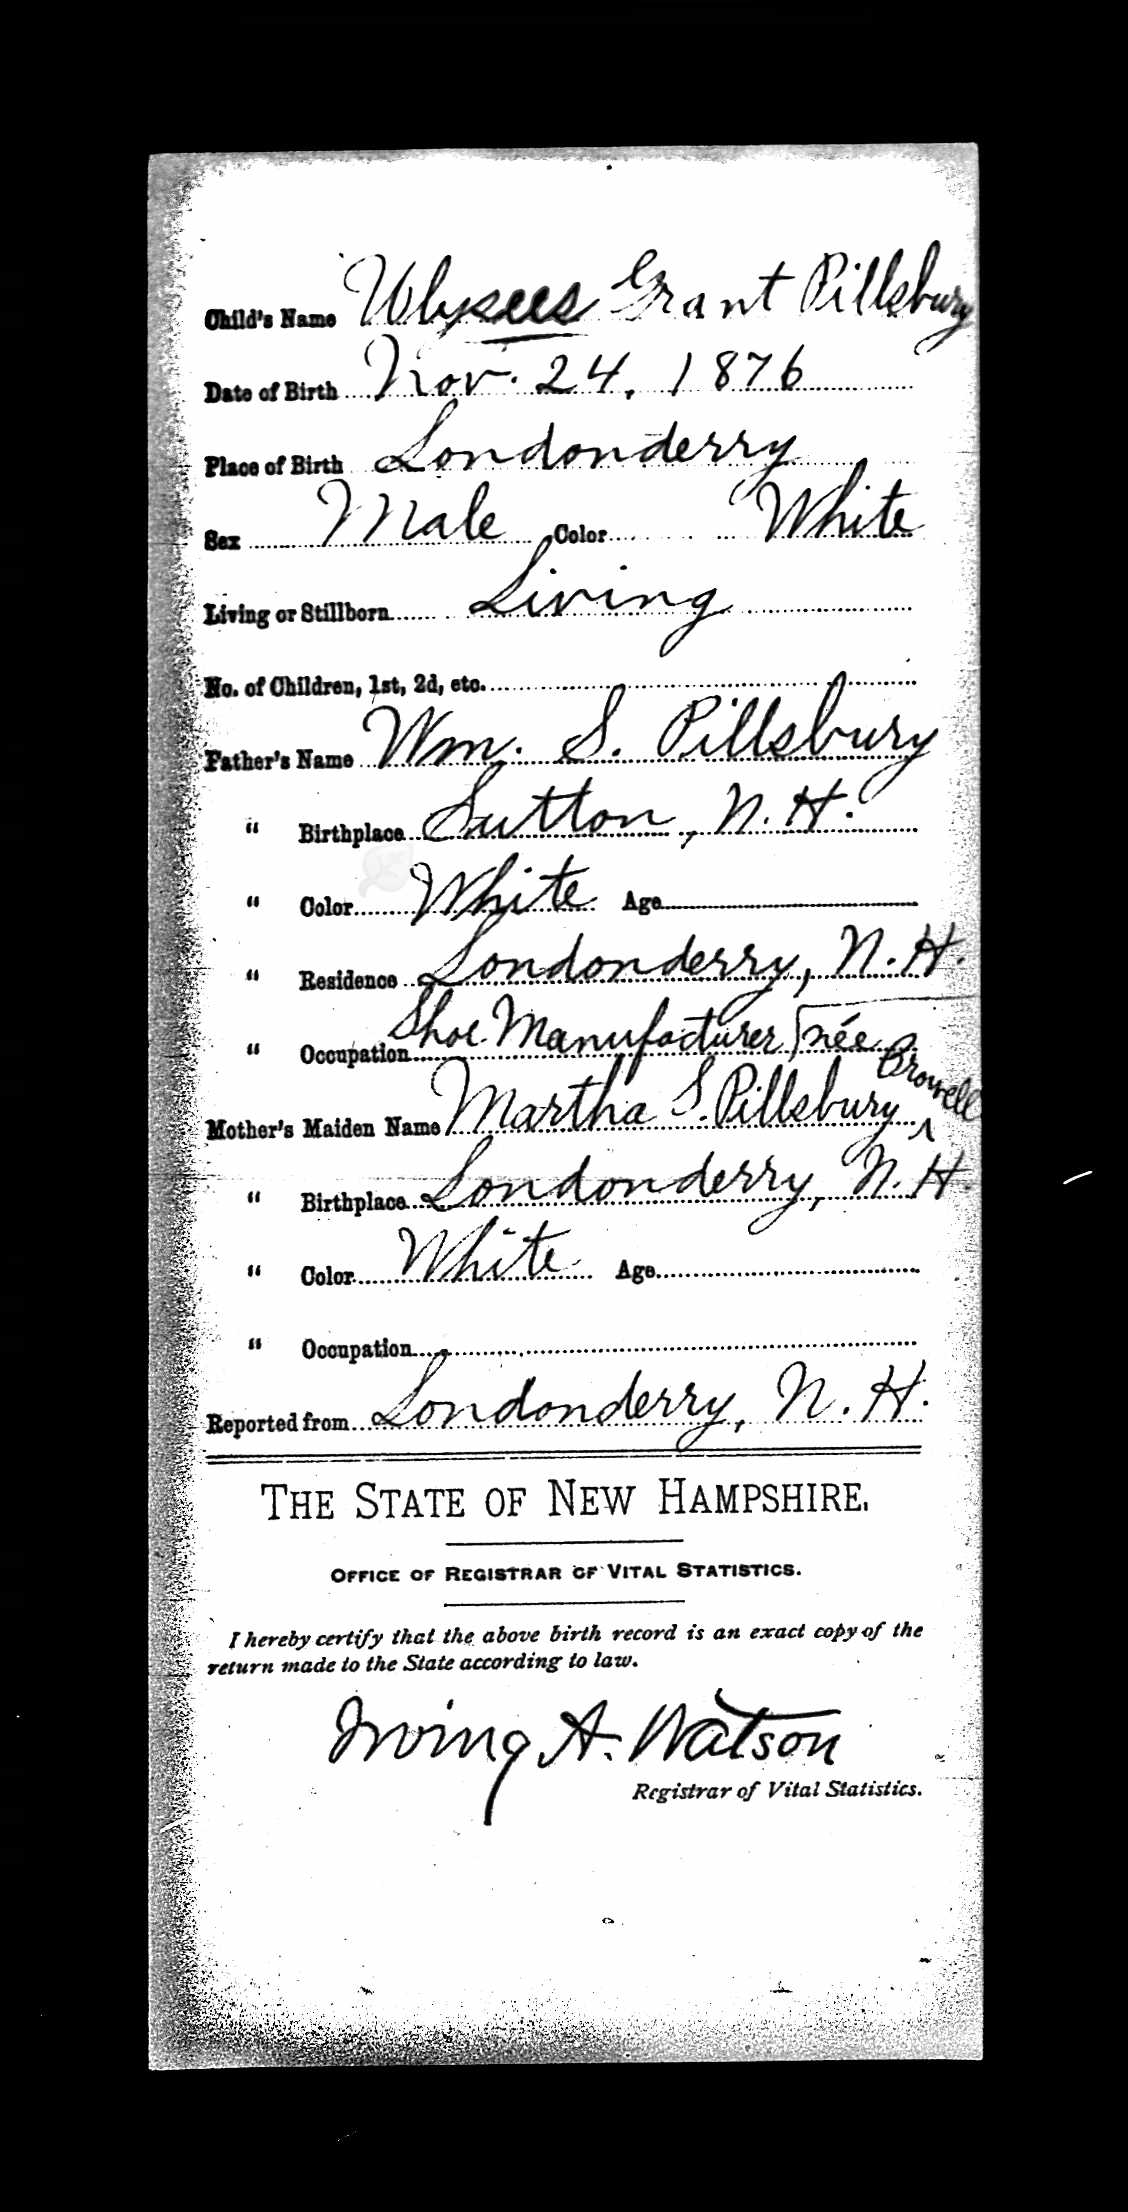 Child's Name Ulysees Grant Pillsbury
Date of Birth Nov. 24, 1876
Place of Birth Londonderry
Sex Male Color White
Living or Stillborn Living
No. of Children, 1st, 2d, etc.
Father's Name Wm. S. Pillsbury
" Birthplace Sutton, N.H.
" Color White Age
" Residence Londonderry, N.H.
" Occupation Shoe Manufacturer née Crowell
Mother's Maiden Name Martha S. Pillsbury
" Birthplace Londonderry, N.H.
" Color White Age
" Occupation
Reported from Londonderry, N.H.
THE STATE OF NEW HAMPSHIRE.
OFFICE OF REGISTRAR OF VITAL STATISTICS.
I hereby certify that the above birth record is an exact copy of the
return made to the State according to law.
Irving A. Watson
Registrar of Vital Statistics.